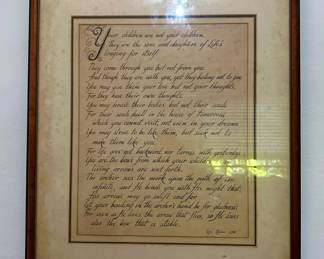 Your children are not your children.
They are the sons and daughters of Life's
longing for itself.
They come through you but not from you.
And though they are with you, yet they belong not to you.
You may give them your love but not your thoughts,
For they have their own thoughts.
You may house their bodies but not their souls,
For their souls dwell in the house of tomorrow,
which you cannot visit, not even in your dreams.
You may strive to be like them, but seek not to
make them like you.
For life goes not backward nor tarries with yesterday.
You are the bows from which your children
living arrows are sent forth.
The archer sees the mark upon the path of the
infinite, and He bends you with His might that
His arrows may go swift and far.
Let your bending in the archer's hand be for gladness;
For even as He loves the arrow that flies, so He loves
also the bow that is stable.